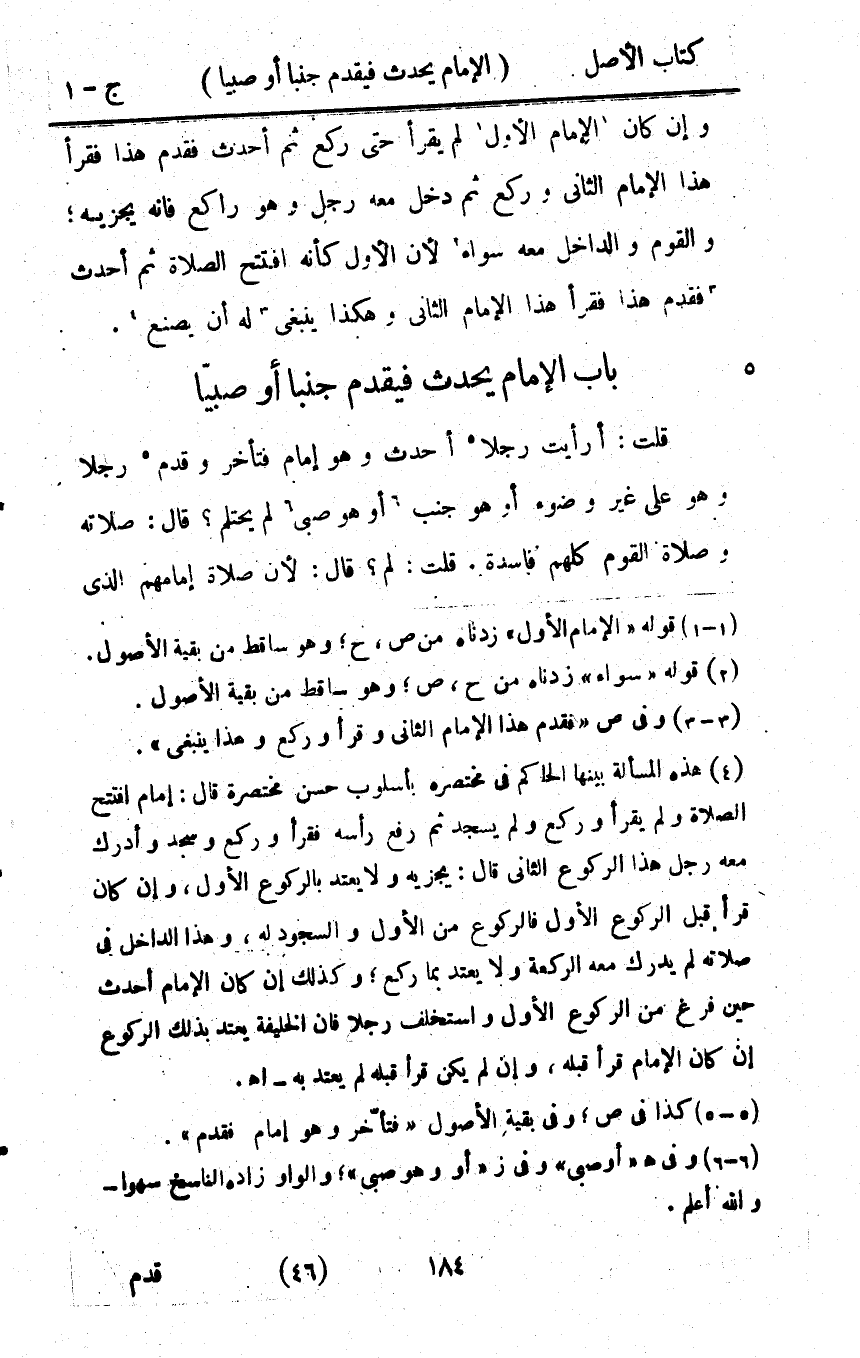 كتاب الأصل ( الإمام يحدث فيقدم جنبا أو صبيا ) ج - ١
و إن كان ' الإمام الأول ' لم يقرأ حتى ركع ثم أحدث فقدم هذا فقرأ
هذا الإمام الثانى و ركع ثم دخل معه رجل و هو راكع فانه يجزيه ؛
و القوم و الداخل معه سواء ٢ لأن الأول كأنه افتتح الصلاة ثم أحدث
٣ فقدم هذا فقرأ هذا الإمام الثانى و هكذا ينبغى ٣ له أن يصنع ٤ .
٥ باب الإمام يحدث فيقدم جنبا أو صبيّا
قلت : أ رأيت رجلا ٥ أحدث و هو إمام فتأخر و قدم ٥ رجلا
و هو على غير وضوء أو هو جنب ٦ أو هو صبى ٦ لم يحتلم ؟ قال : صلاته
و صلاة القوم كلهم فاسدة . قلت : لم ؟ قال : لأن صلاة إمامهم الذى
(١-١) قوله « الإمام الأول » زدناه من ص ، ح ؛ و هو ساقط من بقية الأصول .
(٢) قوله « سواء » زدناه من ح ، ص ؛ و هو ساقط من بقية الأصول .
(٣-٣) و فى ص « فقدم هذا الإمام الثانى و قرأ و ركع و هذا ينبغى » .
(٤) هذه المسألة بينها الحاكم فى مختصره بأسلوب حسن مختصرة قال : إمام افتتح
الصلاة و لم يقرأ و ركع و لم يسجد ثم رفع رأسه فقرأ و ركع و سجد و أدرك
معه رجل هذا الركوع الثانى قال : يجزيه و لا يعتد بالركوع الأول ، و إن كان
قرأ قبل الركوع الأول فالركوع من الأول و السجود له ، و هذا الداخل فى
صلاته لم يدرك معه الركعة و لا يعتد بما ركع ؛ و كذلك إن كان الإمام أحدث
حين فرغ من الركوع الأول و استخلف رجلا فان الخليفة يعتد بذلك الركوع
إن كان الإمام قرأ قبله ، و إن لم يكن قرأ قبله لم يعتد به ـ اه .
(٥-٥) كذا فى ص ؛ و فى بقية الأصول « فتأخّر و هو إمام فقدم » .
(٦-٦) و فى ه « أو صبى » و فى ز « أو و هو صبى » ؛ و الواو زاده الناسخ سهوا ـ
و الله أعلم .
١٨٤ (٤٦) قدم